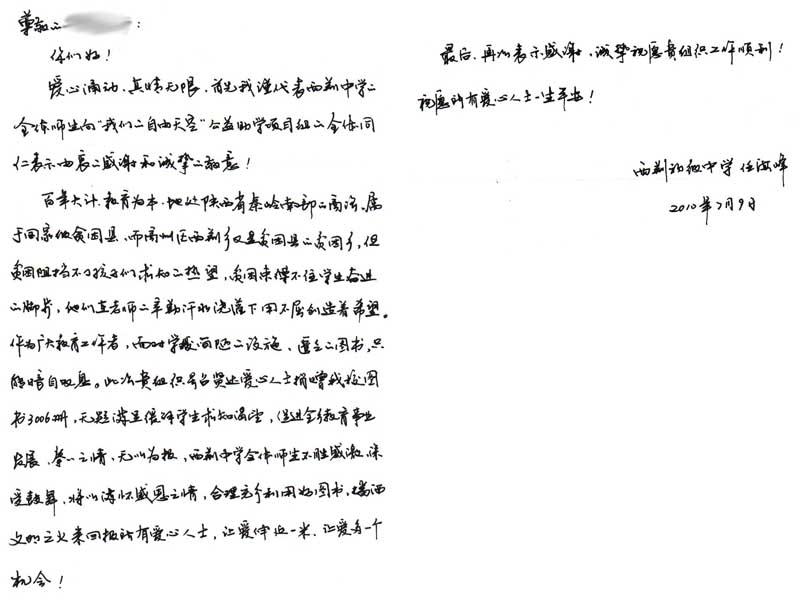 尊敬的
你们好！
爱心涌动、真情无限，首先我谨代表西荆中学的
全体师生向“我们的自由天空”公益助学项目组的全体同
仁表示由衷的感谢和诚挚的敬意！
百年大计，教育为本。地处陕西省秦岭南部的商洛，属
于国家级贫困县，而商州区西荆乡又是贫困县的贫困乡，但
贫困阻挡不了孩子们求知的热望，贫困束缚不住学生奋进
的脚步，他们在老师的辛勤汗水浇灌下用不屈创造着希望。
作为广大教育工作者，面对学校简陋的设施、匮乏的图书，只
能暗自叹息。此次贵组织号召贤达爱心人士捐赠我校图
书3006册，无疑满足偏僻学生求知渴望，促进全乡教育事业
发展，挚的情，无以为报，西荆中学全体师生不胜感激，深
受鼓舞，将以满怀感恩之情，合理充分利用好图书，
来回报所有爱心人士，让爱伸近一米，让爱多一个
机会！
最后，再次表示感谢，诚挚祝愿贵组织工作顺利！
祝愿所有爱心人士一生平安！
西荆初级中学 任淑峰
2010年7月9日